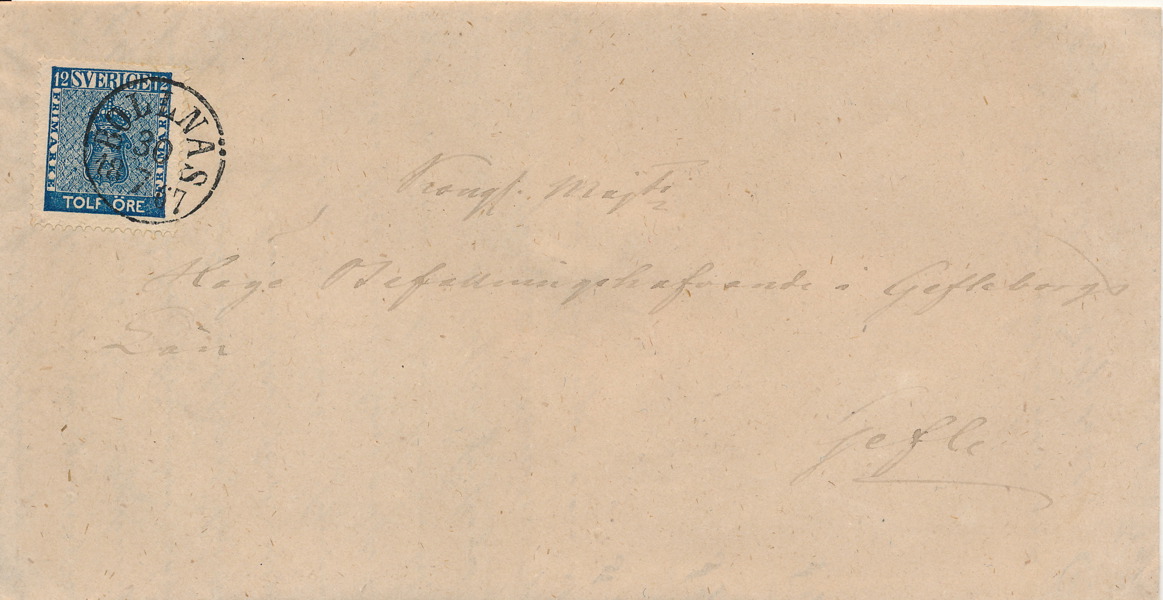 12 SVERIGE 12
FRIMARKE FRIMARKE
TOLF ÖRE
BOLLNÄS
30
7
1867
Kongl. Majts
Höge Befallningshafvande i Gefleborgs
Län
Gefle